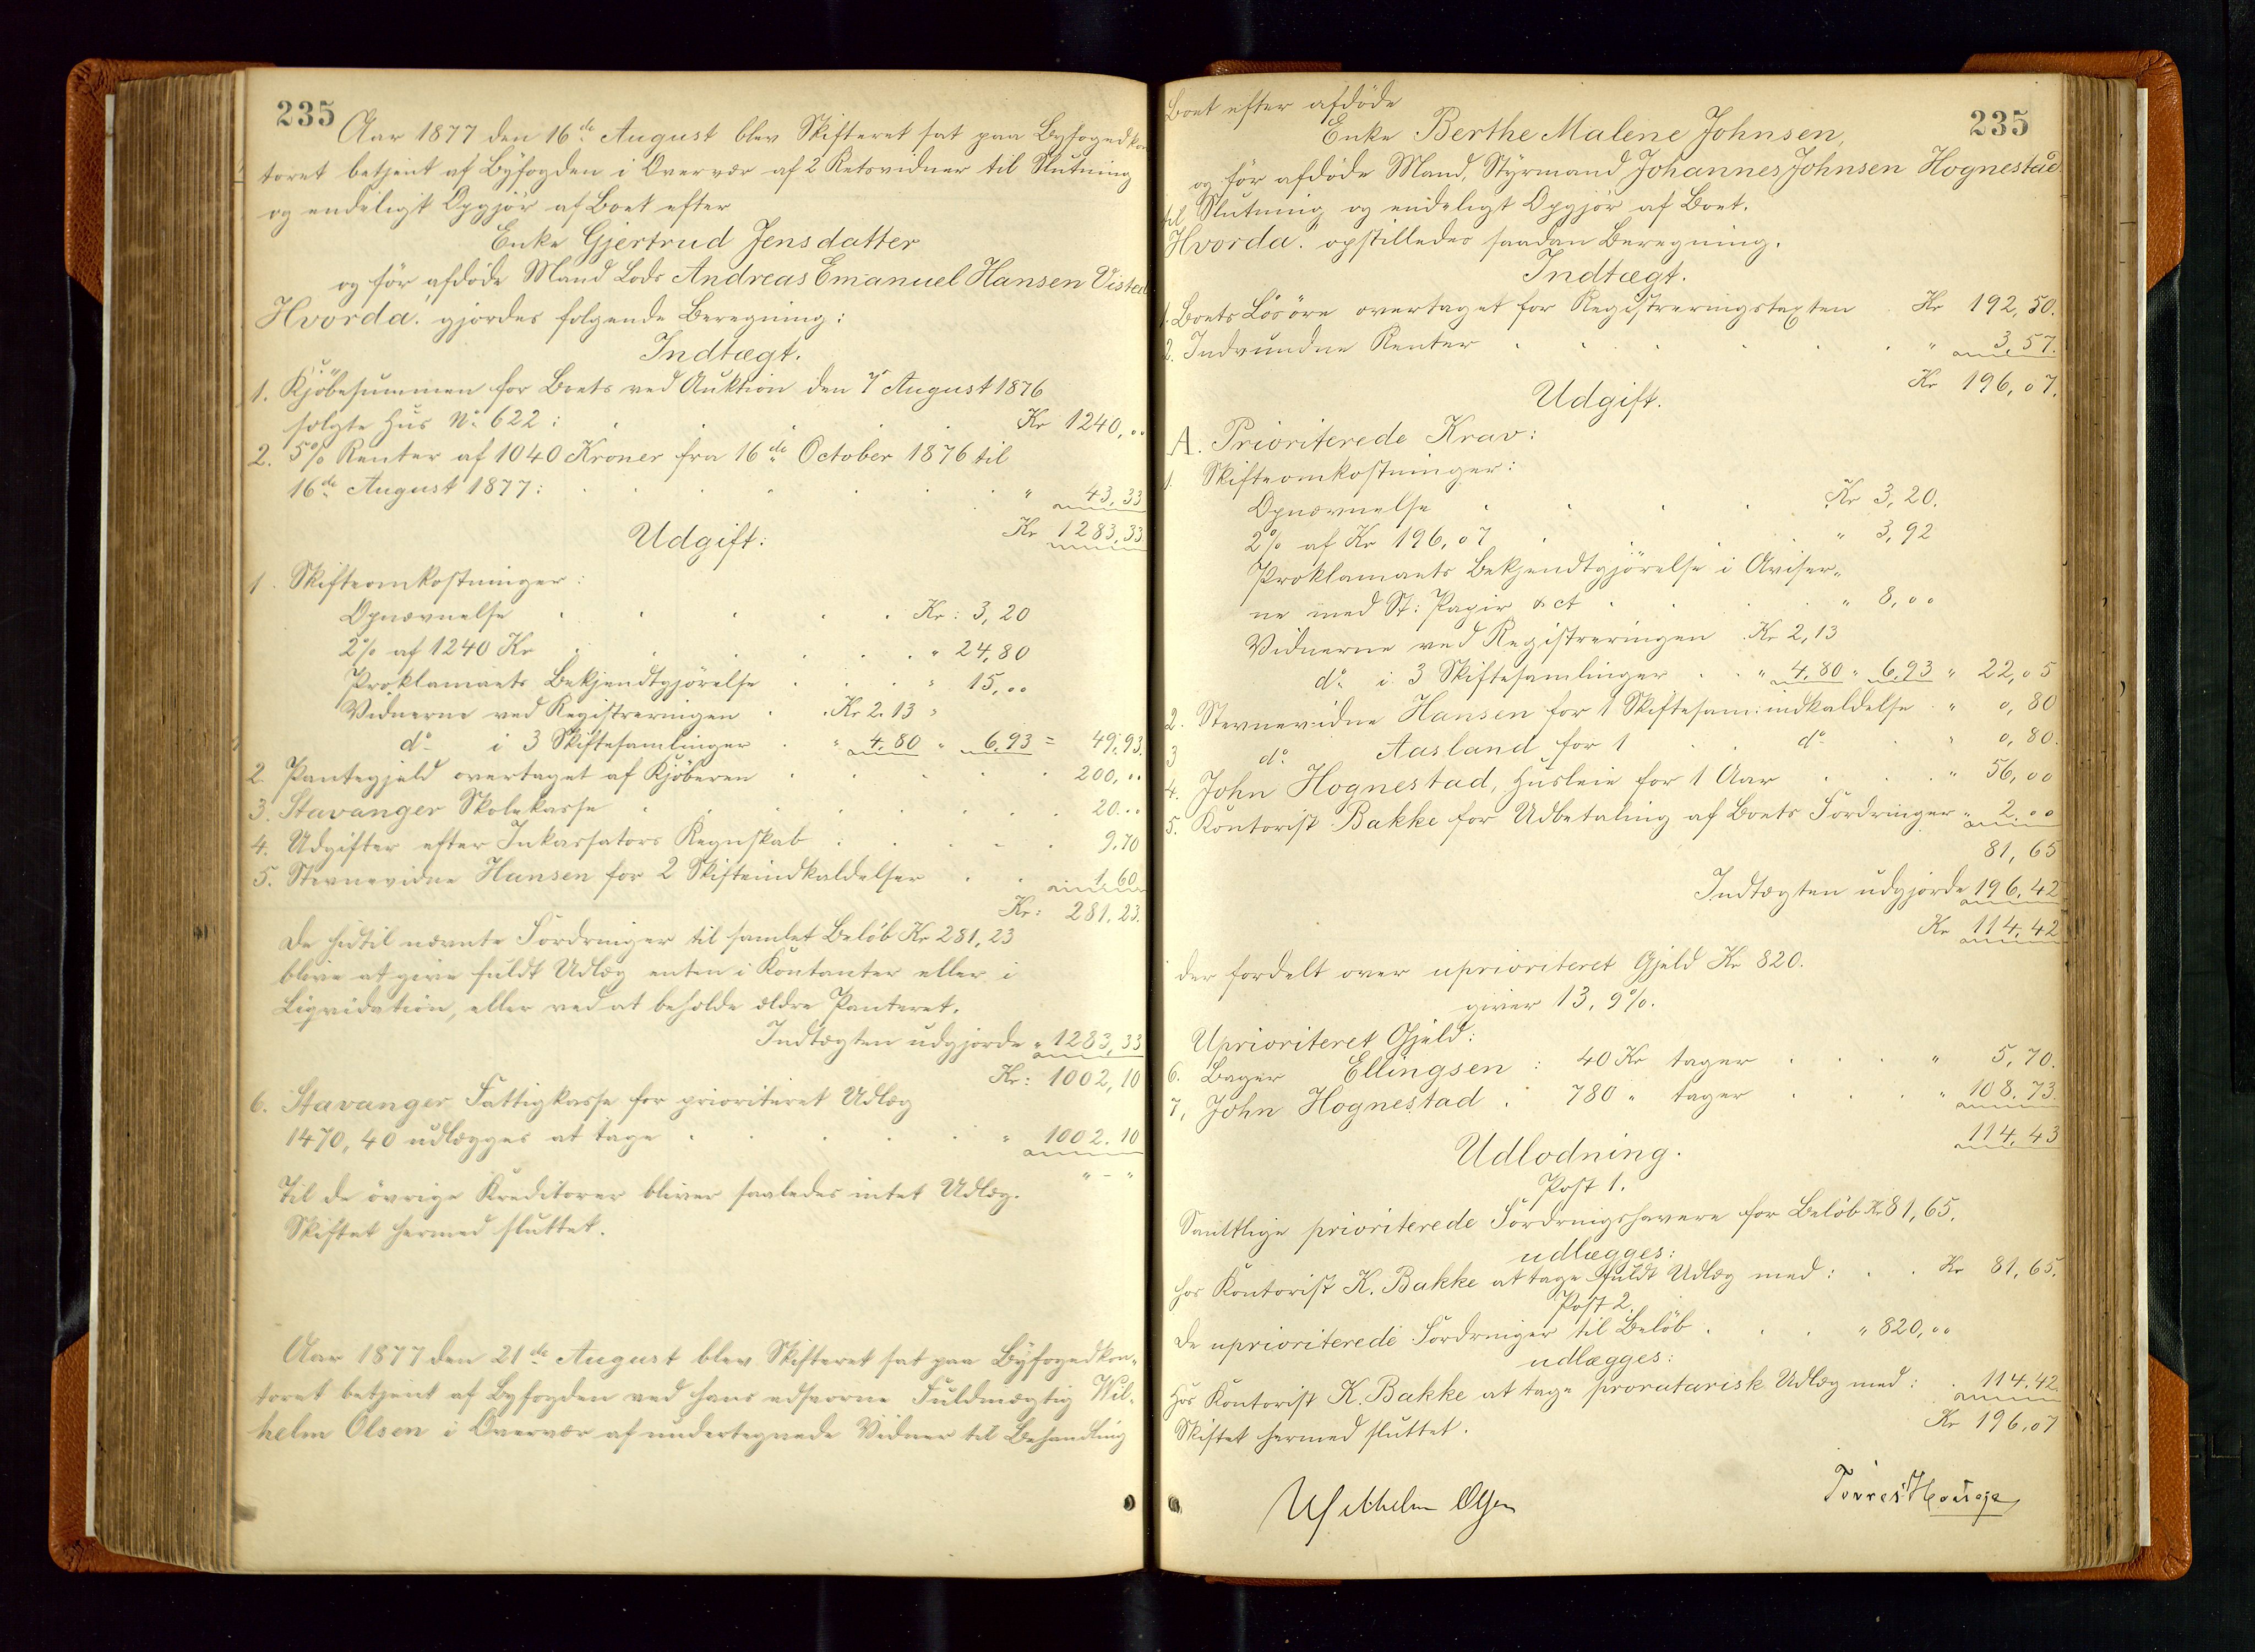 235
Aar 1877 den 16de August blev Skifteret sat paa Byfogedkon
toret betjent af Byfogden i Overvær af 2 Retsvidner til Slutning
og endeligt Opgjör af Boet efter
Enke Gjertrud Jensdatter
og för afdöde Mand Lods Andreas Emanuel Hansen Visted
Hvorda: gjordes folgende Beregning:
Indtægt.
1. Kjöbesummen for Boets ved Auktion den 7' August 1876
solgte Hus No 622: Kr 1240,00
2. 5% Renter af 1040 Kroner fra 16de October 1876 til
16de August 1877: " 43,33
Kr 1283,33
Udgift:
1. Skifteomkostninger:
Opnævnelse Kr: 3,20
2% af 1240 Kr " 24,80
Proklamaets Bekjendtgjörelse " 15,00
Vidnerne ved Registreringen Kr 2.13 "
do i 3 Skiftesamlinger " 4.80 " 6,93 = 49,93.
2. Pantegjeld overtaget af Kjöberen 200,00
3. Stavanger Skolekasse 20.00
4. Udgifter efter Inkassators Regnskab 9.70
5. Stevnevidne Hansen for 2 Skifteindkaldelser 1,60
Kr: 281.23.
De hidtil nævnte Fordringer til samlet Belöb Kr 281,23
blive at give fuldt Udlæg enten i Kontanter eller i
Liqvidation, eller ved at beholde ældre Panteret.
Indtægten udgjorde " 1283,33
Kr: 1002,10
6. Stavanger Fattigkasse for prioriteret Udlæg
1470,40 udlægges at tage " 1002.10
" - "
Til de övrige Kreditorer bliver saaledes intet Udlæg.
Skiftet hermed sluttet.
Aar 1877 den 21de August blev Skifteret sat paa Byfogedkon-
toret betjent af Byfogden ved hans edsvorne Fuldmægtig Wil-
helm Olsen i Overvær af undertegnede Vidner til Behandling
235
Boet efter afdöde
Enke Berthe Malene Johnsen,
og för afdöde Mand, Styrmand Johannes Johnsen Hognestad
til Slutning og endeligt Opgjör af Boet.
Hvorda: opstilledes saadan Beregning.
Indtægt.
1. Boets Lösöre overtaget for Registreringstaxten Kr 192,50.
2. Indvundne Renter " 3,57.
Kr 196,07.
Udgift.
A. Prioriterede Krav:
1. Skifteomkostninger:
Opnævnelse Kr 3,20.
2% af Kr 196,07 " 3,92
Proklamaets Bekjendtgjörelse i Aviser-
ne med St: Papir &ct " 8,00
Vidnerne ved Registreringen Kr 2,13
do i 3 Skiftesamlinger " 4.80 " 6,93 " 22,05
2. Stevnevidne Hansen for 1 Skiftesam: indkaldelse " 0,80
3 do Aasland for 1 do " 0,80.
4. John Hognestad, Husleie for 1 Aar " 56,00
5. Kontorist Bakke for Udbetaling af Boets Fordringer " 2.00
81,65
Indtægten udgjorde 196.42
Kr 114.42
der fordelt over uprioriteret Gjeld Kr 820.
giver 13,9%.
Uprioriteret Gjeld:
6. Bager Ellingsen : 40 Kr tager " 5,70.
7, John Hognestad . 780 " tager " 108.73.
114.43
Udlodning.
Post 1.
Samtlige prioriterede Fordringshavere for Belöb Kr 81,65.
udlægges:
hos Kontorist K. Bakke at tage fuldt Udlæg med: Kr 81,65.
Post 2.
De uprioriterede Fordringer til Belöb " 820,00
udlægges:
hos Kontorist K. Bakke at tage proratarisk Udlæg med: 114.42
Kr 196,07
Skiftet hermed sluttet.
Wilhelm Olsen